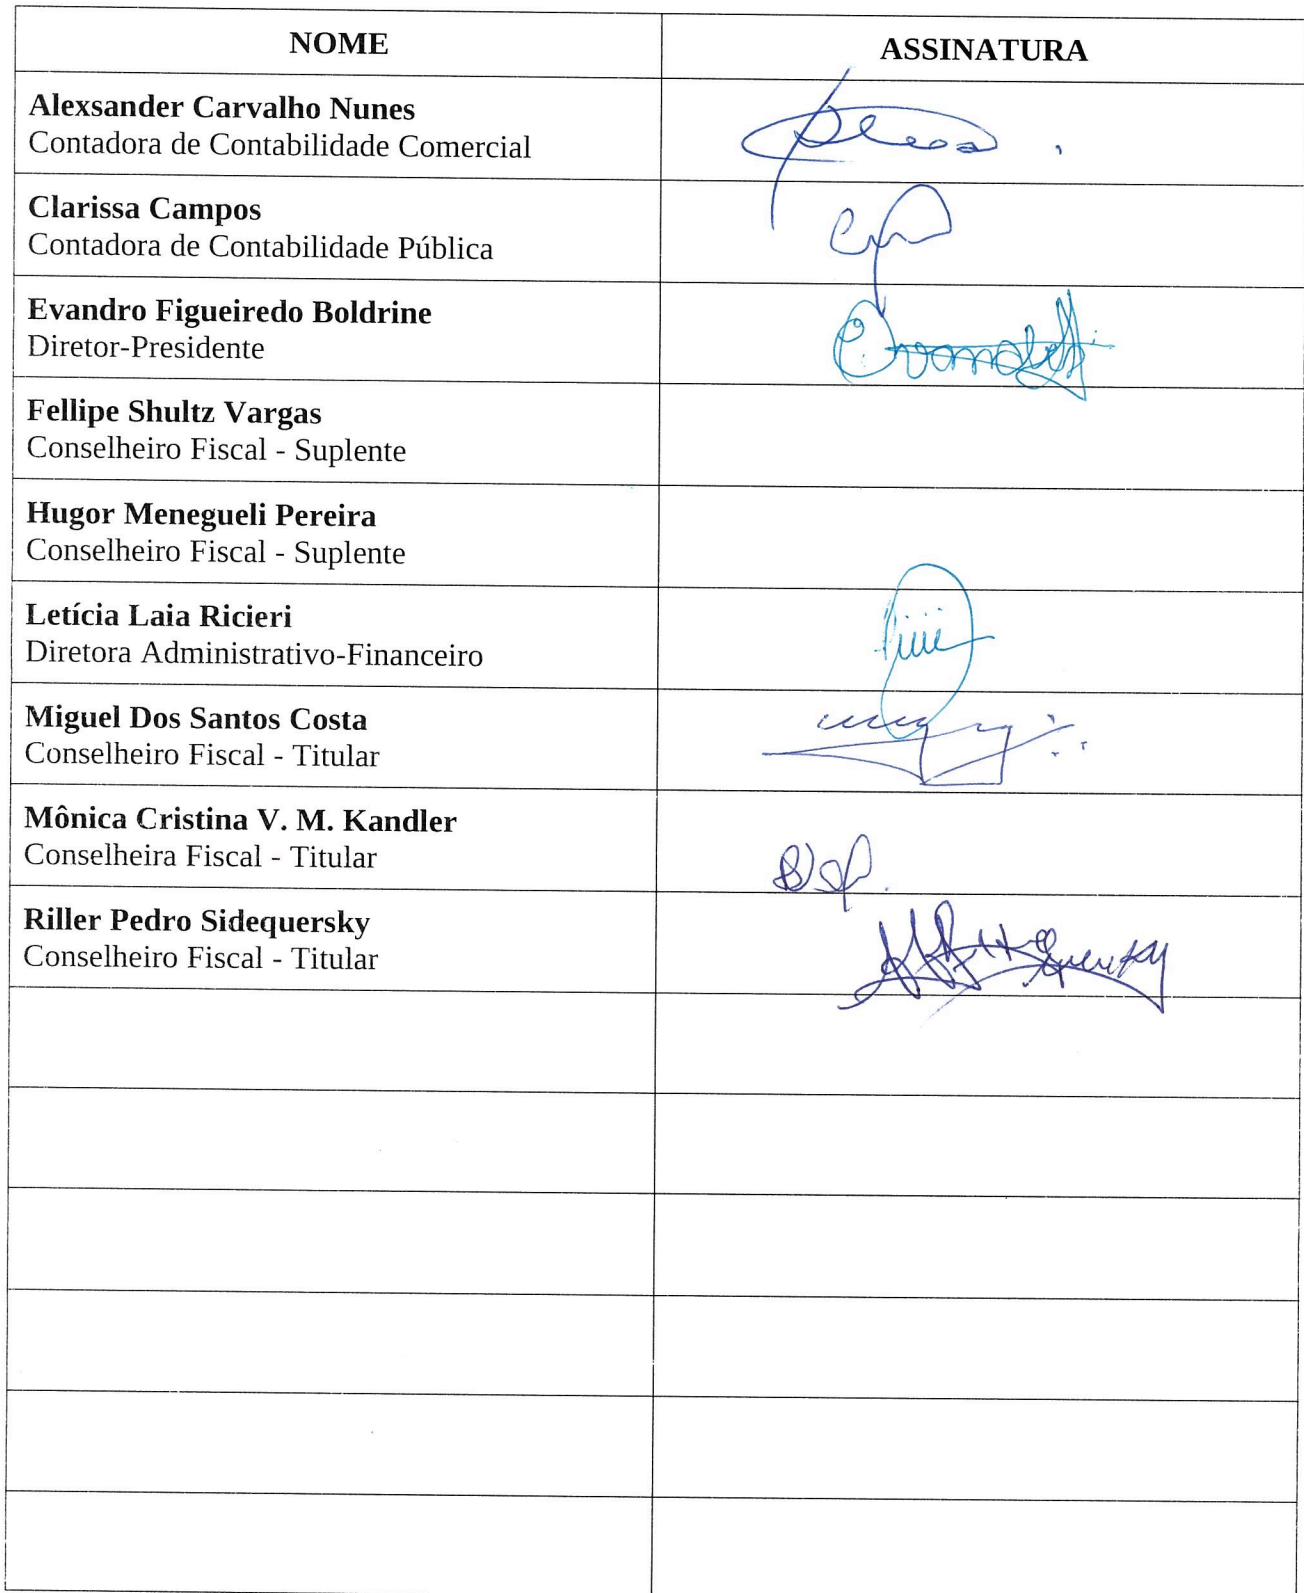 NOME
ASSINATURA
Alexsander Carvalho Nunes
Contadora de Contabilidade Comercial
Clarissa Campos
Contadora de Contabilidade Pública
Evandro Figueiredo Boldrine
Diretor-Presidente
Fellipe Shultz Vargas
Conselheiro Fiscal - Suplente
Hugor Menegueli Pereira
Conselheiro Fiscal - Suplente
Letícia Laia Ricieri
Diretora Administrativo-Financeiro
Miguel Dos Santos Costa
Conselheiro Fiscal - Titular
Mônica Cristina V. M. Kandler
Conselheira Fiscal - Titular
Riller Pedro Sidequersky
Conselheiro Fiscal - Titular